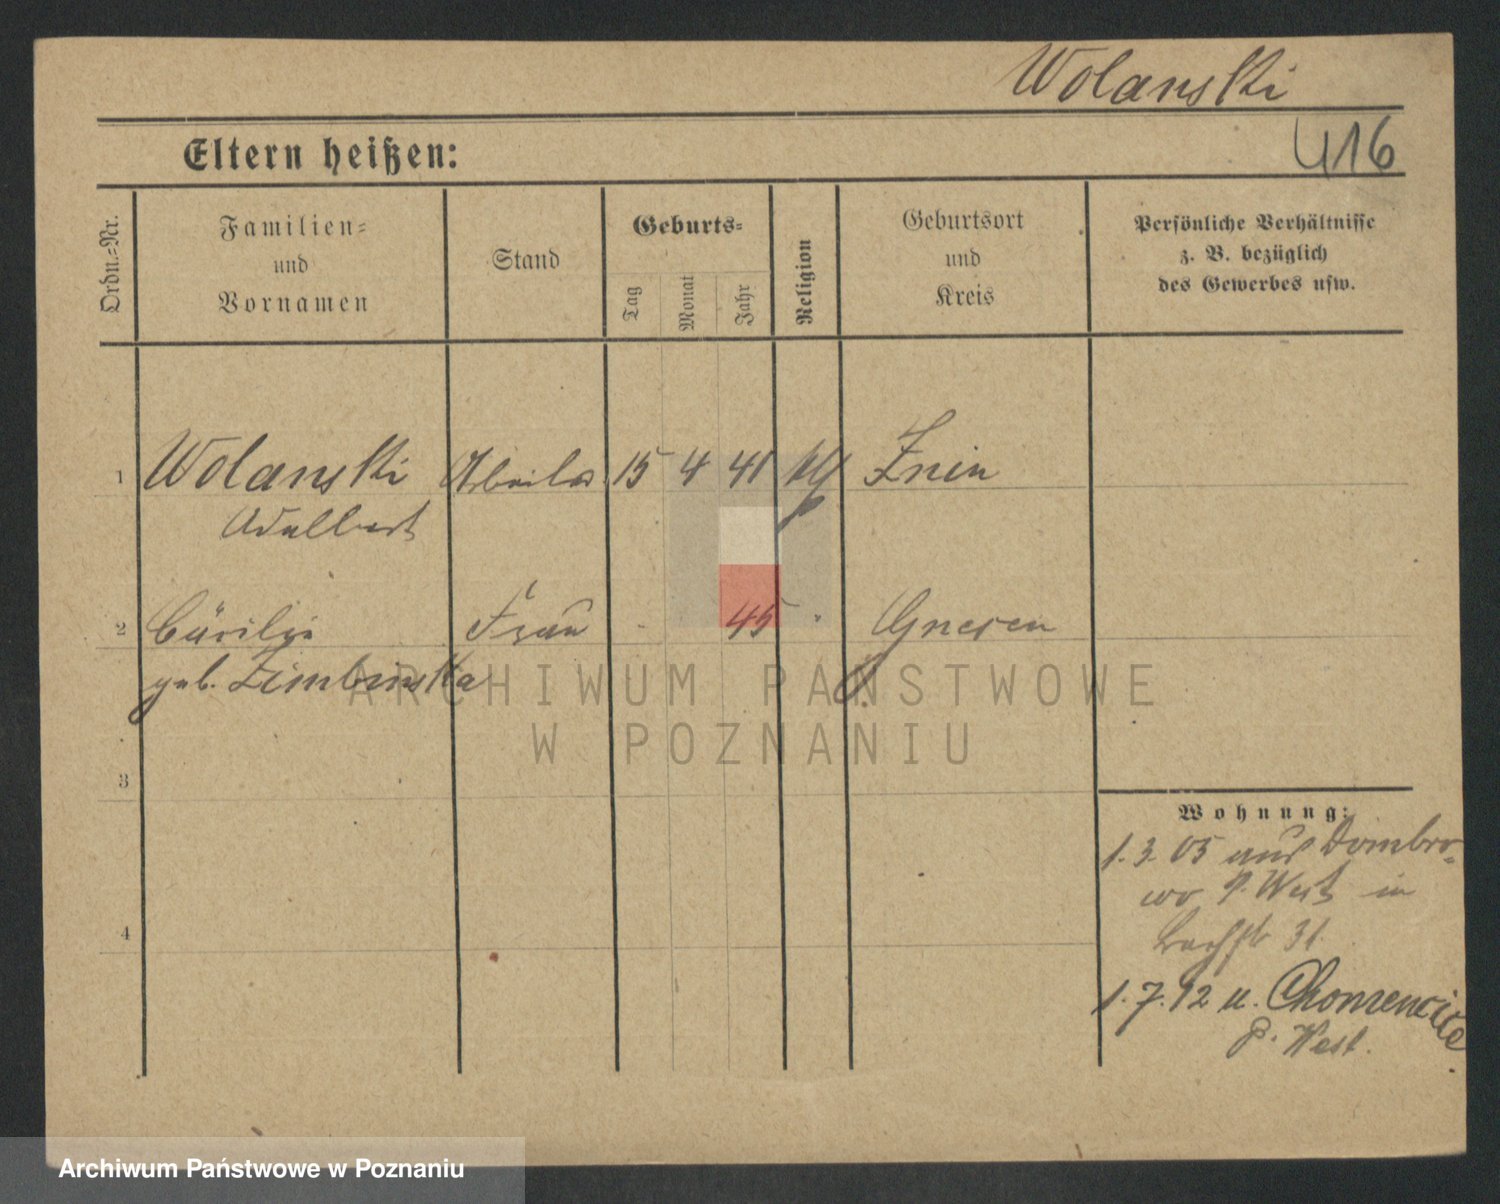 Wolanski
Eltern heißen:
416
Ordn.-Nr.
Familien-
und
Vornamen
Stand
Geburts-
Tag
Monat
Jahr
Religion
Geburtsort
und
Kreis
Persönliche Verhältnisse
z. B. bezüglich
des Gewerbes usw.
1 Wolanski Arbeiter 15 4 41 Znin
Adalbert
2 Cäcilie Frau 45 Gnesen
geb.
3
4
Wohnung:
1. 3. 05 aus Dombro-
wo P. West in
Bachstr 31
1. 7. 12 n. Chomencice
P. West.
ARCHIWUM PAŃSTWOWE
W POZNANIU
Archiwum Państwowe w Poznaniu